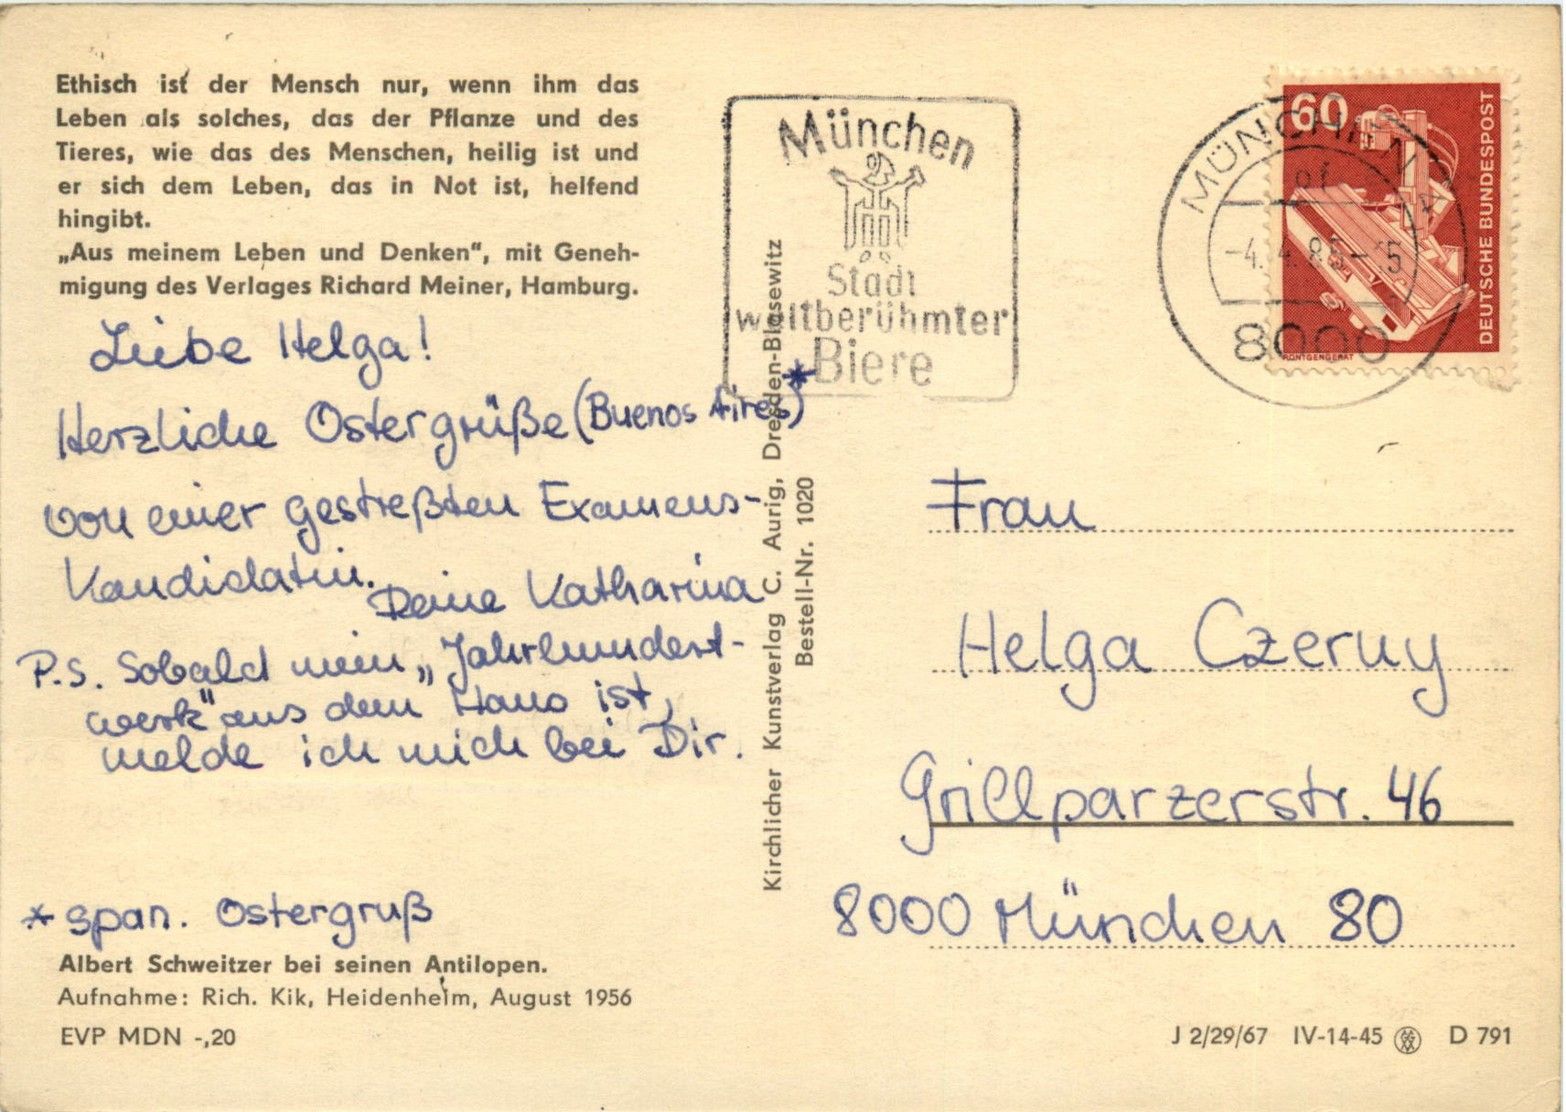 Ethisch ist der Mensch nur, wenn ihm das
Leben als solches, das der Pflanze und des
Tieres, wie das des Menschen, heilig ist und
er sich dem Leben, das in Not ist, helfend
hingibt.
„Aus meinem Leben und Denken“, mit Geneh-
migung des Verlages Richard Meiner, Hamburg.
Liebe Helga!
Herzliche Ostergrüße (Buenos Aires)*
von einer gestreßten Examens-
Kandidatin.
Deine Katharina
P.S. Sobald mein „Jahrhundert-
werk" aus dem Haus ist,
melde ich mich bei Dir.
* span. Ostergruß
Albert Schweitzer bei seinen Antilopen.
Aufnahme: Rich. Kik, Heidenheim, August 1956
EVP MDN -,20
Kirchlicher Kunstverlag C. Aurig, Dresden-Blasewitz
Bestell-Nr. 1020
München
Stadt
weltberühmter
Biere
MÜNCHEN
-4.4.85-15
8000
60
DEUTSCHE BUNDESPOST
RÖNTGENGERÄT
Frau
Helga Czerny
Grillparzerstr. 46
8000 München 80
J 2/29/67 IV-14-45 D 791